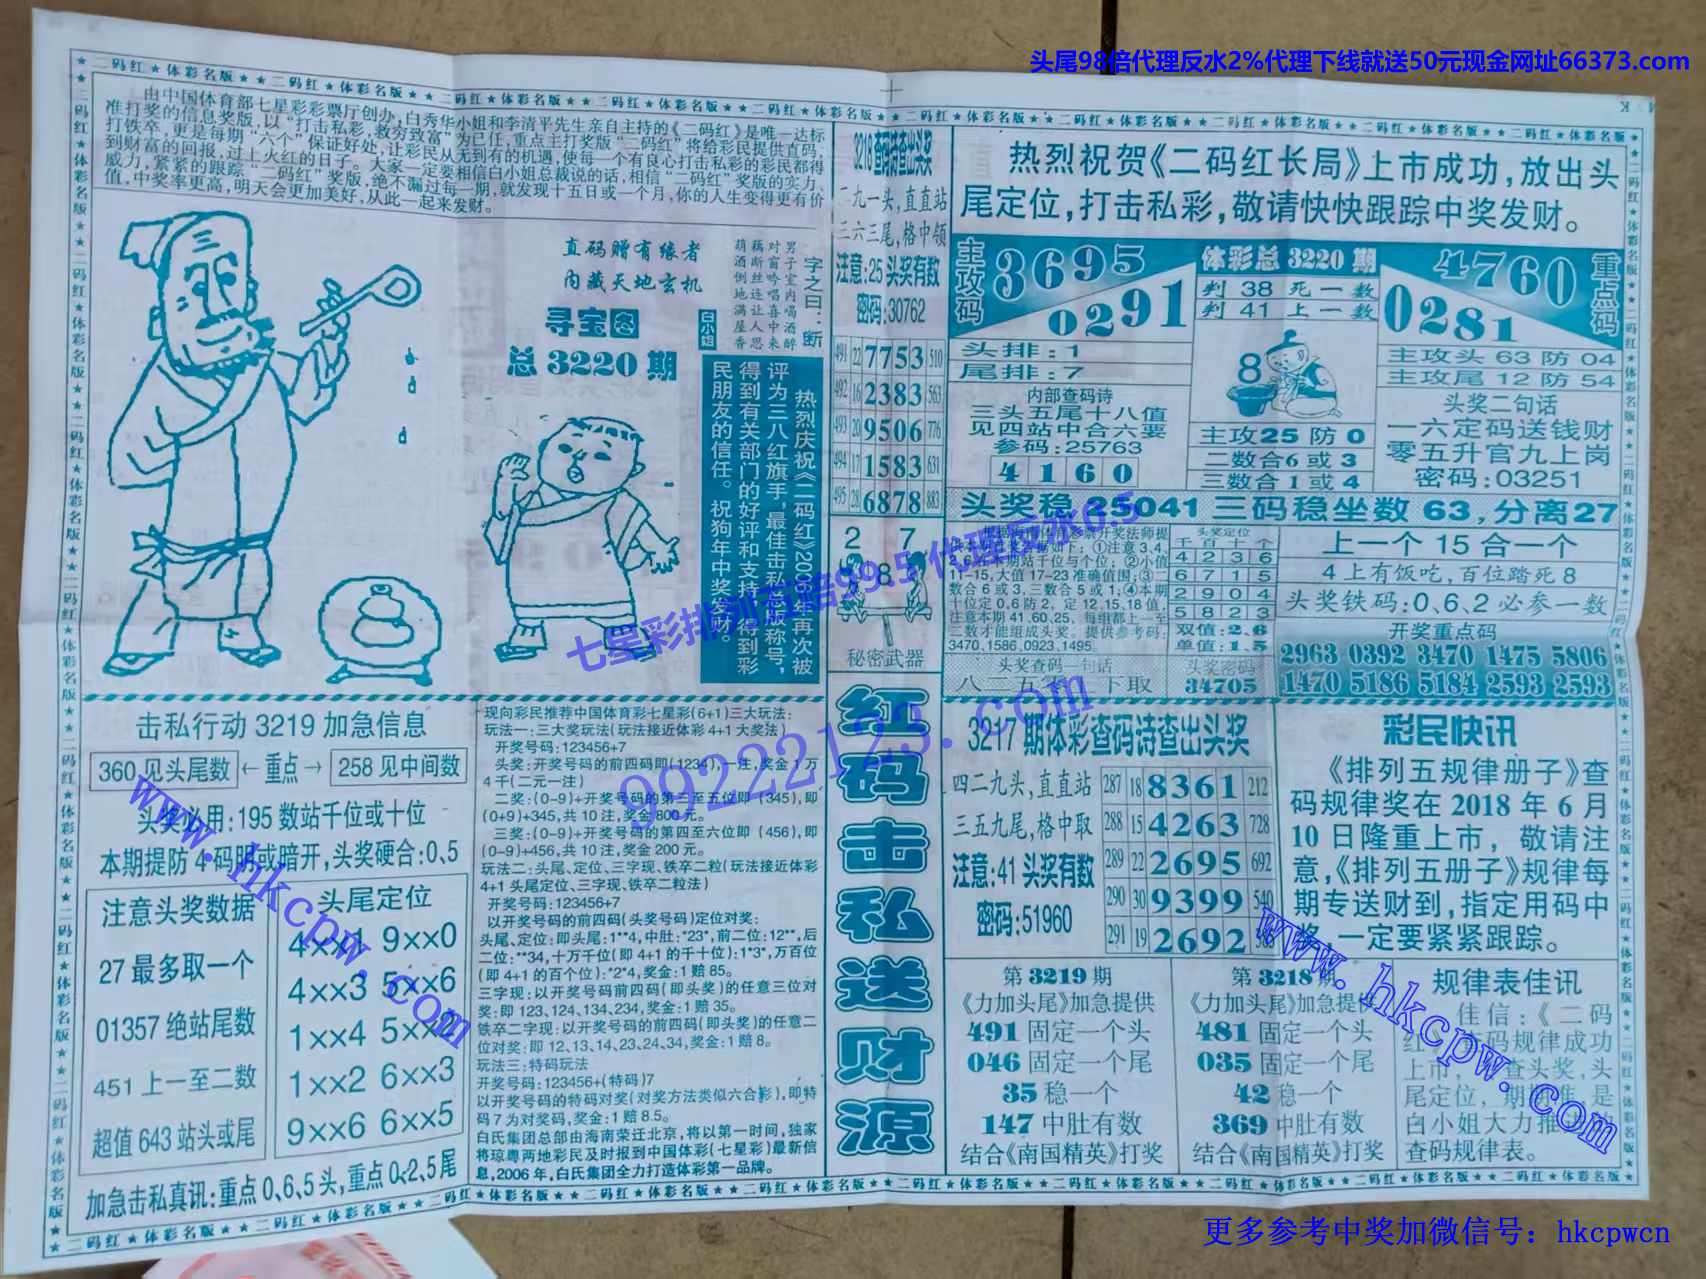 头尾98倍代理反水2%代理下线就送50元现金网址66373.com
★二码红★体彩名版★
由中国体育部七星彩彩票厅创办,白秀华小姐和李清平先生亲自主持的《二码红》是唯一达标
准打奖的信息奖版,以“打击私彩,救穷致富”为已任,重点主打奖版“二码红”将给彩民提供直码、
打铁卒,更是每期“六个”保证好处,让彩民从无到有的机遇,使每一个有良心打击私彩的彩民都得
到财富的回报,过上火红的日子。大家一定要相信白小姐总裁说的话,相信“二码红”奖版的实力、
威力,紧紧的跟踪“二码红”奖版,绝不漏过每一期,就发现十五日或一个月,你的人生变得更有价
值,中奖率更高,明天会更加美好,从此一起来发财。
直码赠有缘者
内藏天地玄机
寻宝图
总3220期
白小姐
一字之曰:断
男子室内喝酒醉
对窗吟唱喜中来
藕断丝连让人思
萌酒倒地满屋香
热烈庆祝《二码红》2006年再次被
评为三八红旗手,最佳击私版称号,
得到有关部门的好评和支持,得到彩
民朋友的信任。祝狗年中奖发财。
3218查码诗查出头奖
二九一头,直直站
三六三尾,格中领
注意:25头奖有数
密码:30762
491 22 7753 510
492 16 2383 563
493 20 9506 776
494 17 1583 631
495 28 6878 883
2 7
8
秘密武器
红码击私送财源
热烈祝贺《二码红长局》上市成功,放出头
尾定位,打击私彩,敬请快快跟踪中奖发财。
主攻码
3695
0291
体彩总3220期
判 38 死一数
判 41 上一数
4760
0281
重点码
头排:1
尾排:7
内部查码诗
三头五尾十八值
见四站中合六要
参码:25763
4 1 6 0
8
主攻25防0
二数合6或3
三数合1或4
主攻头 63 防 04
主攻尾 12 防 54
头奖二句话
一六定码送钱财
零五升官九上岗
密码:03251
头奖稳35041三码稳坐数63,分离27
11-15,大值17-23准确值围;③二
数合6或3,三数合5或1;④本期
十位定0,6防2,定12,15,18值,
注意本期41,60,25,每组都上一至
二数才能组成头奖。提供参考码:
3470,1586,0923,1495。
头奖定位
千百十个
4 2 3 6
6 7 1 5
2 9 0 4
5 8 2 3
双值:2.6
单值:1.5
头奖查码一句话
头奖密码
34705
上一个15合一个
4上有饭吃,百位踏死8
头奖铁码:0、6、2必参一数
开奖重点码
2963 0392 3470 1475 5806
1470 5186 5184 2593 2593
击私行动3219加急信息
360见头尾数 ←重点→ 258见中间数
头奖必用:195数站千位或十位
本期提防4码明或暗开,头奖硬合:0、5
注意头奖数据
27最多取一个
01357绝站尾数
451上一至二数
超值643站头或尾
头尾定位
4××1 9××0
4××3 5××6
1××4 5××2
1××2 6××3
9××6 6××5
加急击私真讯:重点0、6、5头,重点0、2、5尾
现向彩民推荐中国体育彩七星彩(6+1)三大玩法:
玩法一:三大奖玩法(玩法接近体彩4+1大奖法)
开奖号码:123456+7
头奖:开奖号码的前四码即(1234),一注,奖金1万
4千(二元一注)
二奖:(0-9)+开奖号码的第三至五位即(345),即
(0+9)+345,共10注,奖金800元。
三奖:(0-9)+开奖号码的第四至六位即(456),即
(0-9)+456,共10注,奖金200元。
玩法二:头尾、定位、三字现、铁卒二粒(玩法接近体彩
4+1头尾定位、三字现、铁卒二粒法)
开奖号码:123456+7
以开奖号码的前四码(头奖号码)定位对奖:
头尾、定位:即头尾:1**4,中肚:*23*,前二位:12**,后
二位:**34,十万千位(即4+1的千十位):1*3*,万百位
(即4+1的百个位):*2*4,奖金:1赔85。
三字现:以开奖号码前四码(即头奖)的任意三位对
奖:即123,124,134,234,奖金:1赔35。
铁卒二字现:以开奖号码的前四码(即头奖)的任意二
位对奖:即12、13、14、23、24、34,奖金:1赔8。
玩法三:特码玩法
开奖号码:123456+(特码)7
以开奖号码的特码对奖(对奖方法类似六合彩),即特
码7为对奖码,奖金:1赔8.5。
白氏集团总部由海南荣迁北京,将以第一时间,独家
将琼粤两地彩民及时报到中国体彩(七星彩)最新信
息,2006年,白氏集团全力打造体彩第一品牌。
3217期体彩查码诗查出头奖
四二九头,直直站
三五九尾,格中取
注意:41头奖有数
密码:51960
287 18 8361 212
288 15 4263 728
289 22 2695 692
290 30 9399 540
291 19 2692
彩民快讯
《排列五规律册子》查
码规律奖在2018年6月
10日隆重上市,敬请注
意,《排列五册子》规律每
期专送财到,指定用码中
奖,一定要紧紧跟踪。
第3219期
《力加头尾》加急提供
491固定一个头
046固定一个尾
35稳一个
147中肚有数
结合《南国精英》打奖
第3218期
《力加头尾》加急提供
481固定一个头
035固定一个尾
42稳一个
369中肚有数
结合《南国精英》打奖
规律表佳讯
佳信:《二码
红》查码规律成功
上市,查头奖,头
尾定位,期期准,是
白小姐大力推
查码规律表。
七星彩排列五赔99.5代理反水0.5
99222123.com
www.hkcpw.com
www.hkcpw.com
更多参考中奖加微信号：hkcpwcn